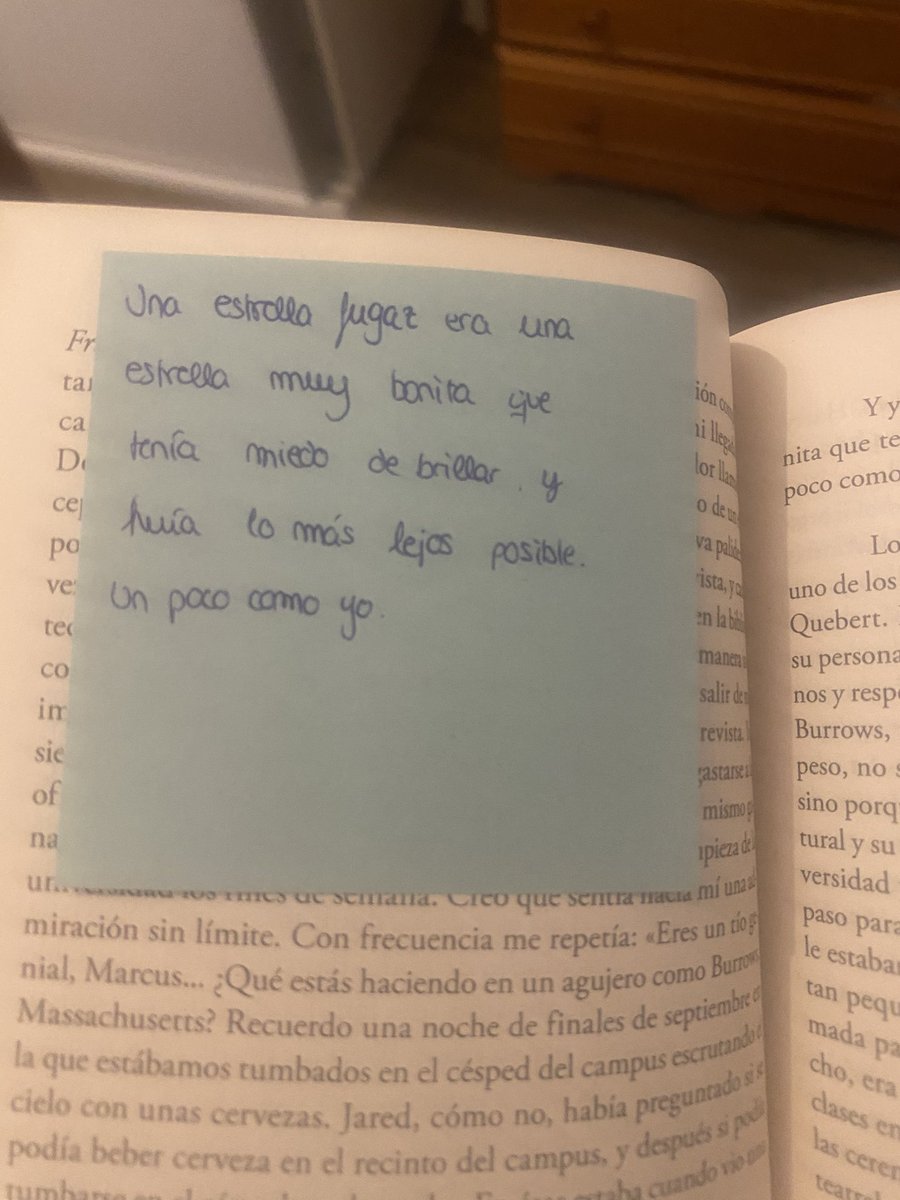 Una estrella fugaz era una
estrella muy bonita que
tenía miedo de brillar. y
huía lo más lejos posible.
Un poco como yo.
Fr
ta
ca
D
ce
po
ve
tec
co
im
sie
of
na
ión
mi llega
lor
o de
va
rista, y
en la
manera
salir de
revista.
gastarse
mismo
mpieza de
los fines de semana. Creo que sentía hacia mí una
miración sin límite. Con frecuencia me repetía: «Eres un tío ge
nial, Marcus... ¿Qué estás haciendo en un agujero como Burrows,
Massachusetts? Recuerdo una noche de finales de septiembre en
la que estábamos tumbados en el césped del campus escrutando e
cielo con unas cervezas. Jared, cómo no, había preguntado si s
podía beber cerveza en el recinto del campus, y después si podí
tumbarse en el estaba cuando vio
Y y
nita que te
poco como
Lo
uno de los
Quebert.
su persona
nos y resp
Burrows,
peso, no s
sino porq
tural y su
versidad
paso para
le estaba
tan pequ
mada pa
cho, era
clases en
las cere
teatra